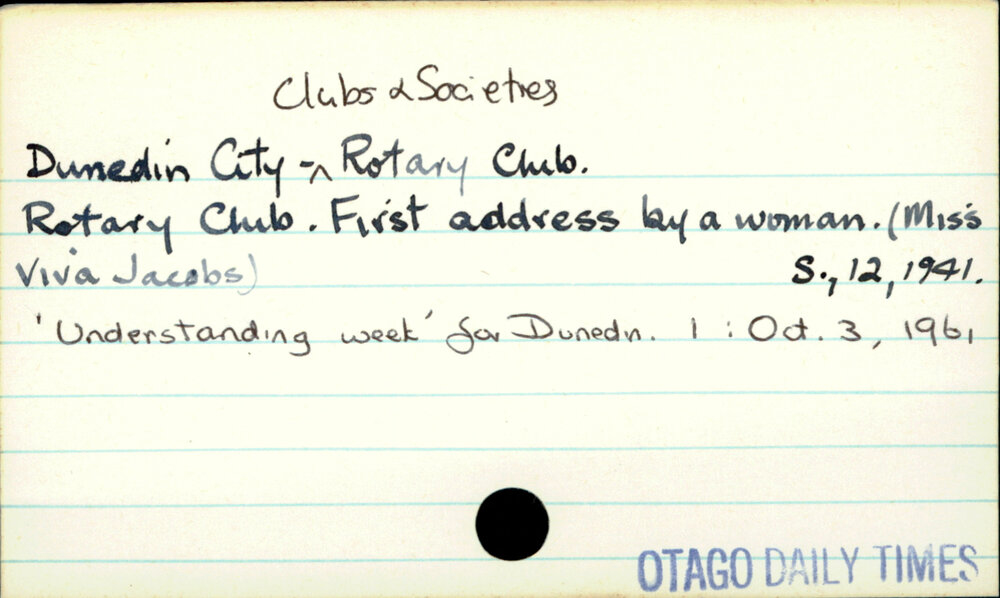 Clubs & Societies
Dunedin City - ^ Rotary Club.
Rotary Club. First address by a woman. (Miss
Viva Jacobs) S., 12, 1941.
'Understanding week' for Dunedn. 1 : Oct. 3, 1961
OTAGO DAILY TIMES